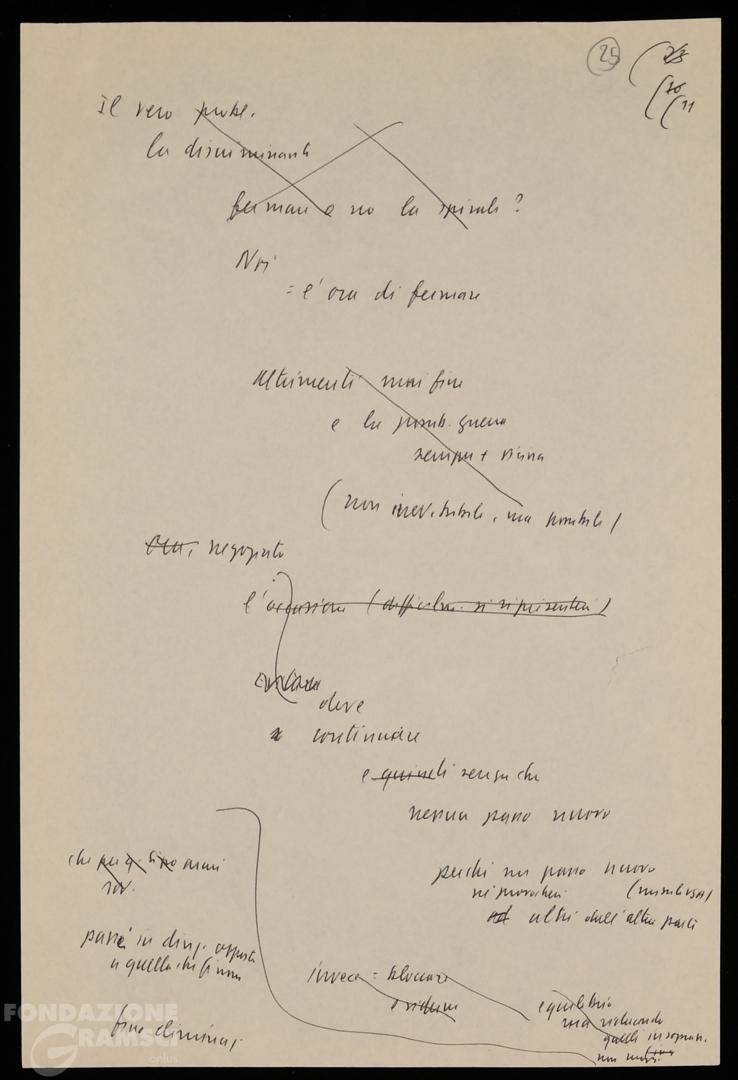 25
(23
(10
(11
Il vero probl.
la discriminante
fermare o no la spirale?
Noi
= è ora di fermare
Altrimenti mai fine
e la possib. guerra
sempre + vicina
(non inevitabile, ma possibile)
Ora, negoziato
l'occasione (difficilm. si ripresenterà)
deve
continuare
e quindi senza che
nessun passo nuovo
perché un passo nuovo
ne provocherà (missili USA)
ad altri dall'altra parte
che per q. tipo armi
sov.
passi in direz. opposta
a quella che finora
fine eliminaz.
invece = bloccare
e ridurre
equilibrio
ma riducendo
quelli in soprann.
non nuovi
FONDAZIONE
GRAMSCI
onlus